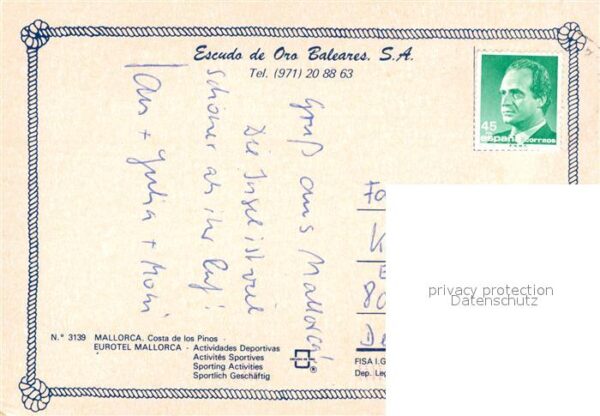 Escudo de Oro Baleares, S.A.
Tel. (971) 20 88 63
45
españa correos
Gruß aus Mallorca!
Die Insel ist viel
schöner als ihr Ruf!
Jan + Julia +
privacy protection
Datenschutz
80
N.° 3139 MALLORCA. Costa de los Pinos -
EUROTEL MALLORCA - Actividades Deportivas
Activités Sportives
Sporting Activities
Sportlich Geschäftig
FISA I.G
Dep. Leg